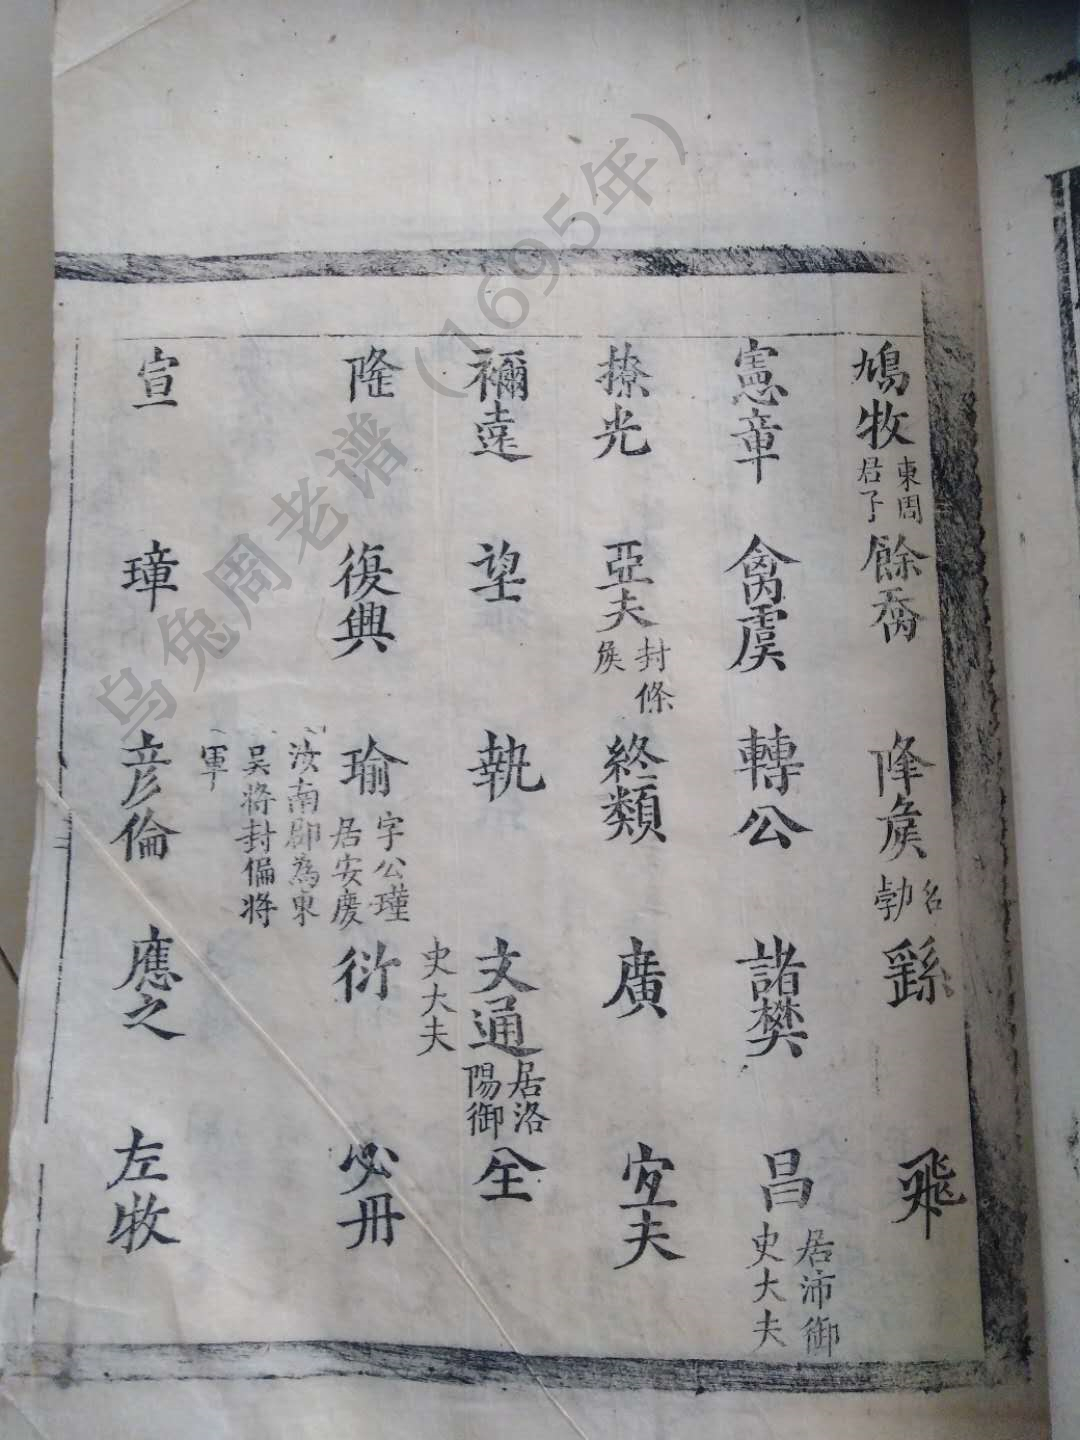 鳩牧
東周
君子
餘裔
降矦
名
勃
繇
飛
憲章
禽虞
轉公
諸樊
昌
居沛御
史大夫
撩光
亞夫
封條
矦
終類
廣
宜夫
禰遠
望
執
文通
居洛
陽御
史大夫
全
隆
復興
瑜
字公瑾
居安慶
汝南郡為東
吴將封偏將
軍
衍
必冊
宣
璋
彦倫
應之
左牧
乌兔周老谱（1695年）